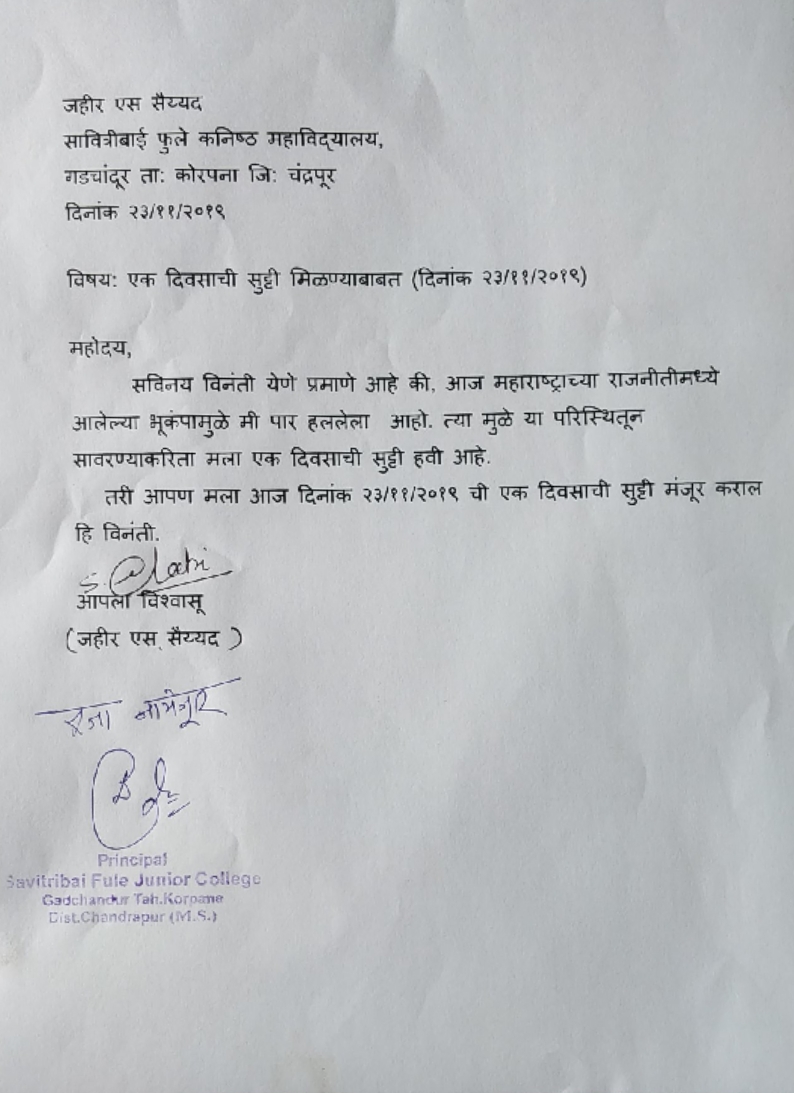 जहीर एस सैय्यद
सावित्रीबाई फुले कनिष्ठ महाविद्यालय,
गडचांदूर ता: कोरपना जि: चंद्रपूर
दिनांक २३/११/२०१९
विषय: एक दिवसाची सुट्टी मिळण्याबाबत (दिनांक २३/११/२०१९)
महोदय,
सविनय विनंती येणे प्रमाणे आहे की, आज महाराष्ट्राच्या राजनीतीमध्ये
आलेल्या भूकंपामुळे मी पार हललेला आहो. त्या मुळे या परिस्थितून
सावरण्याकरिता मला एक दिवसाची सुट्टी हवी आहे.
तरी आपण मला आज दिनांक २३/११/२०१९ ची एक दिवसाची सुट्टी मंजूर कराल
हि विनंती.
आपला विश्वासू
(जहीर एस. सैय्यद )
रजा नामंजूर
Principal
Savitribai Fule Junior College
Gadchandur Tah.Korpana
Dist.Chandrapur (M.S.)